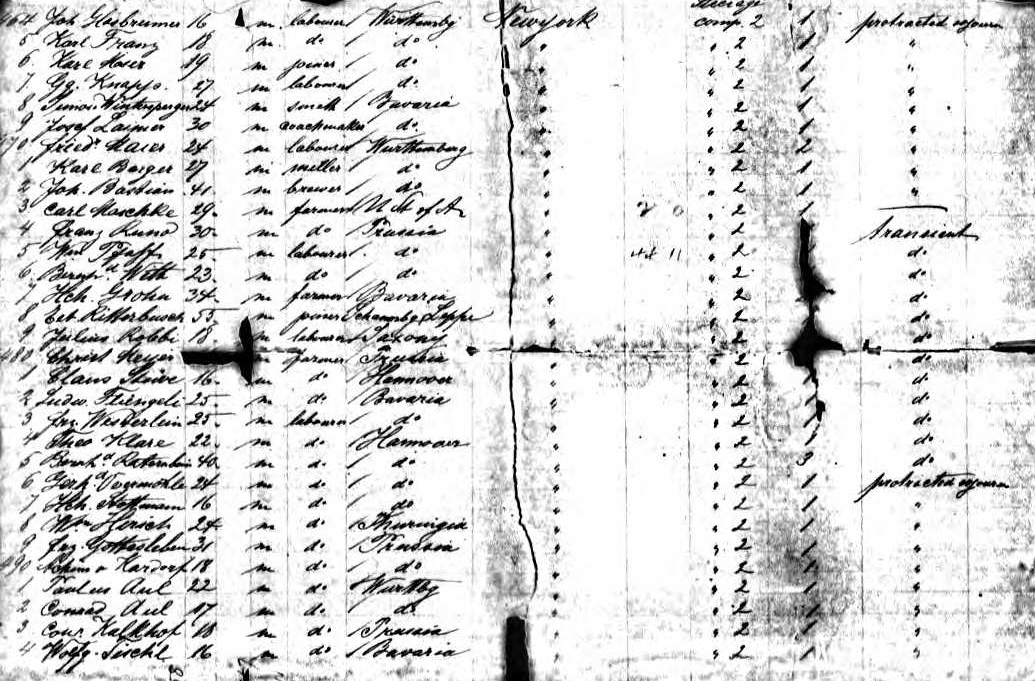 464 Joh 16 m labourer Württembg Newyork Steerage comp. 2 1 protracted sojourn
5 Karl Franz 18 m do / do " " 2 1 "
6 Karl Moser 19 m joiner / do " " 2 1 "
7 Gg. Knapp 27 m labourer / do " " 2 1 "
8 Simon 24 m smith / Bavaria " " 2 1 "
9 Josef Laimer 30 m coachmaker do " " 2 1 "
470 Friedr. Maier 24 m labourer Württemberg " " 2 2 "
1 Karl Berger 27 m miller / do " " 2 1 "
2 Joh. Bastian 41 m brewer / do " " 2 1 "
3 Carl Maschke 29 m farmer U St of A " 2 0 " 2 1
4 Franz Kuno 30 m do / Prussia " " 2 Transient
5 Wm Pfaff 25 m labourer / do " 11 " 2 do
6 Bernhd Witt 23 m do / do " " 2 do
7 Hch. Grohn 34 m farmer / Bavaria " " 2 do
8 Ritterbusch 55 m joiner Schaumbg Lippe " " 2 do
9 Julius Robbi 18 m labourer Saxony " " 2 do
480 Christ Meyer m farmer / Prussia " " 2 do
1 Claus 16 m do / Hannover " " 2 do
2 Ludw. 25 m do / Bavaria " " 2 do
3 Frz. Westerlein 25 m labourer / do " " 2 do
4 Theo Klare 22 m do / Hannover " " 2 1 do
5 Bernhd 40 m do / do " " 2 3 do
6 Gerhd 24 m do / do " " 2 1 protracted sojourn
7 Hch. 16 m do / do " " 2 1 "
8 Wm Hersch 24 m do / Thuringia " " 2 1 "
9 Frz. Gottesleben 31 m do / Prussia " " 2 1 "
490 Achim v Kardorf 18 m do / do " " 2 1 "
1 Paulus Aul 22 m do / Württbg " " 2 1 "
2 Conrad Aul 17 m do / do " " 2 1 "
3 Conr. Kalkhof 18 m do / Prussia " " 2 1 "
4 Wolfg. Tischl 16 m do / Bavaria " " 2 1 "